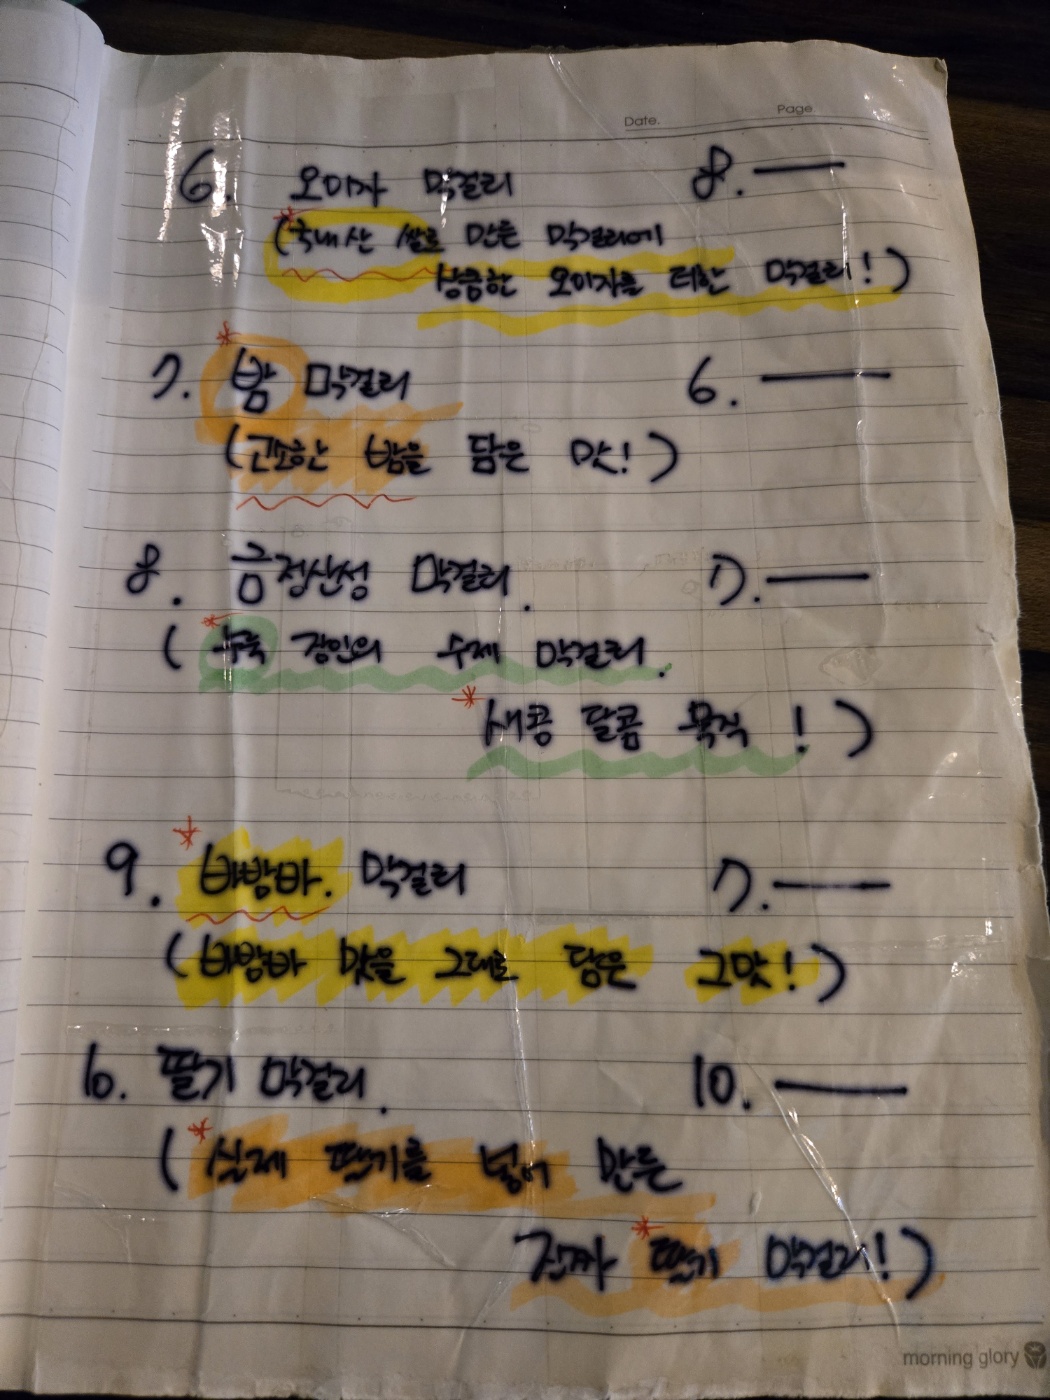 Date. Page
6. 오미자 막걸리 8.—
(*국내산 쌀로 만든 막걸리에
상큼한 오미자를 더한 막걸리!)
7. *밤 막걸리 6.—
(고소한 밤을 담은 맛!)
8. 금정산성 막걸리. 7.—
(*누룩 장인의 수제 막걸리.
*새콤 달콤 묵직!)
9. *바밤바. 막걸리 7.—
(바밤바 맛을 그대로 담은 그맛!)
10. 딸기 막걸리. 10.—
(*실제 딸기를 넣어 만든
진짜 *딸기 막걸리!)
morning glory